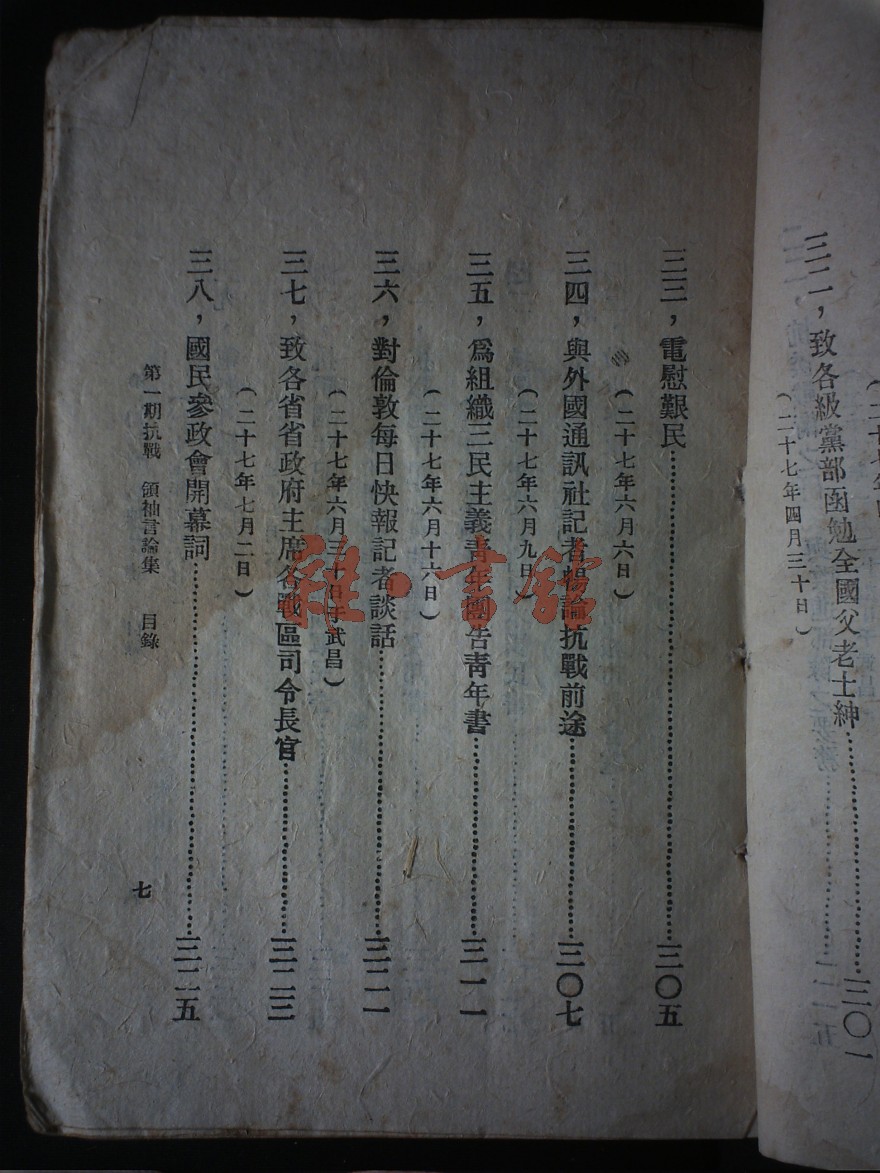 三二，致各級黨部函勉全國父老士紳……三〇一
（二十七年四月三十日）
三三，電慰艱民……三〇五
（二十七年六月六日）
三四，與外國通訊社記者暢論抗戰前途……三〇七
（二十七年六月九日）
三五，爲組織三民主義靑年團告靑年書……三一一
（二十七年六月十六日）
三六，對倫敦每日快報記者談話……三二一
（二十七年六月三十日于武昌）
三七，致各省省政府主席各戰區司令長官……三二三
（二十七年七月二日）
三八，國民參政會開幕詞……三二五
第一期抗戰 領袖言論集 目錄
七
雜·書館